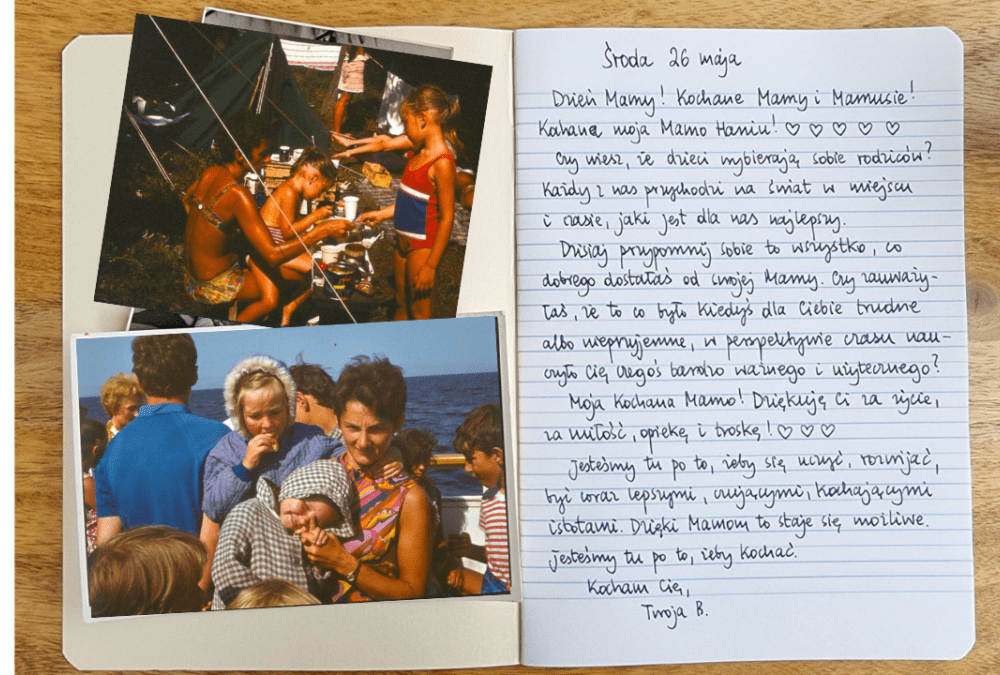 Środa 26 maja
Dzień Mamy! Kochane Mamy i Mamusie!
Kochana, moja Mamo Haniu! ♡ ♡ ♡ ♡ ♡
Czy wiesz, że dzieci wybierają sobie rodziców?
Każdy z nas przychodzi na świat w miejscu
i czasie, jaki jest dla nas najlepszy.
Dzisiaj przypomnij sobie to wszystko, co
dobrego dostałaś od swojej Mamy. Czy zauważy-
łaś, że to co było kiedyś dla Ciebie trudne
albo nieprzyjemne, w perspektywie czasu nau-
czyło Cię czegoś bardzo ważnego i użytecznego?
Moja Kochana Mamo! Dziękuję Ci za życie,
za miłość, opiekę i troskę! ♡ ♡ ♡
Jesteśmy tu po to, żeby się uczyć, rozwijać,
być coraz lepszymi, czującymi, kochającymi
istotami. Dzięki Mamom to staje się możliwe.
Jesteśmy tu po to, żeby kochać.
Kocham Cię,
Twoja B.